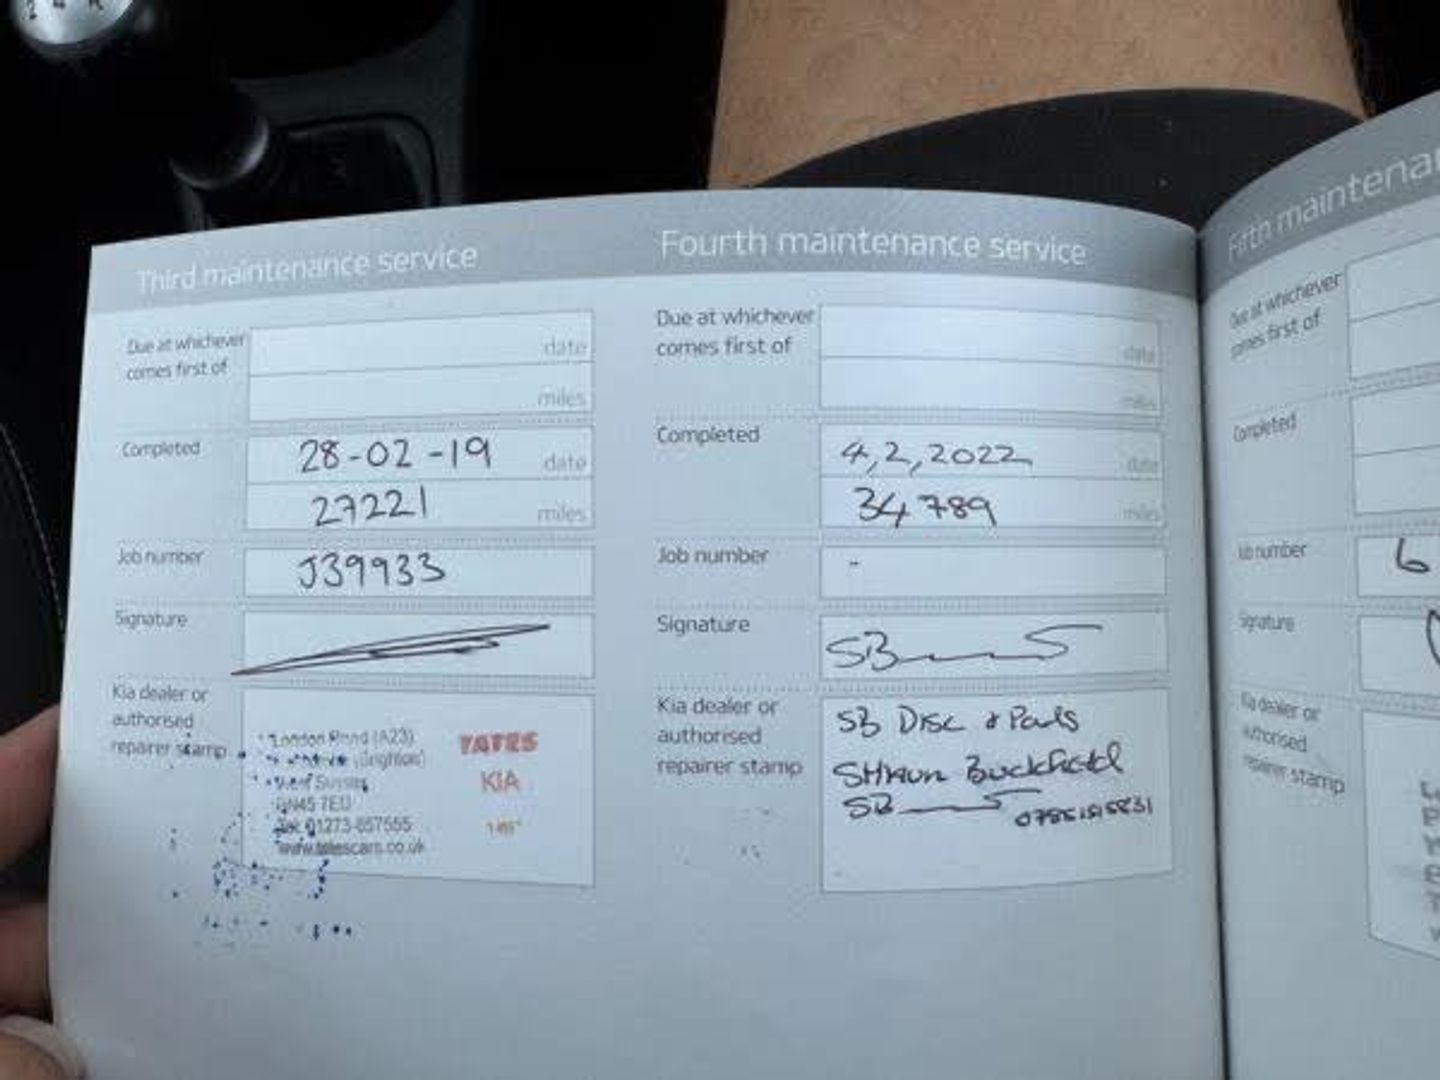 Third maintenance service
Due at whichever
comes first of
date
miles
Completed
28-02-19 date
27221 miles
Job number
J39933
Signature
Kia dealer or
authorised
repairer stamp
London Road (A23)
(Brighton)
West Sussex
BN45 7ED
Tel: 01273-857555
www.yatescars.co.uk
YATES
KIA
Fourth maintenance service
Due at whichever
comes first of
date
miles
Completed
4,2,2022 date
34789 miles
Job number
-
Signature
SB
Kia dealer or
authorised
repairer stamp
SB Disc & Pads
Shaun
SB
Fifth maintenan
Due at whichever
comes first of
Completed
Job number
6
Signature
Kia dealer or
authorised
repairer stamp